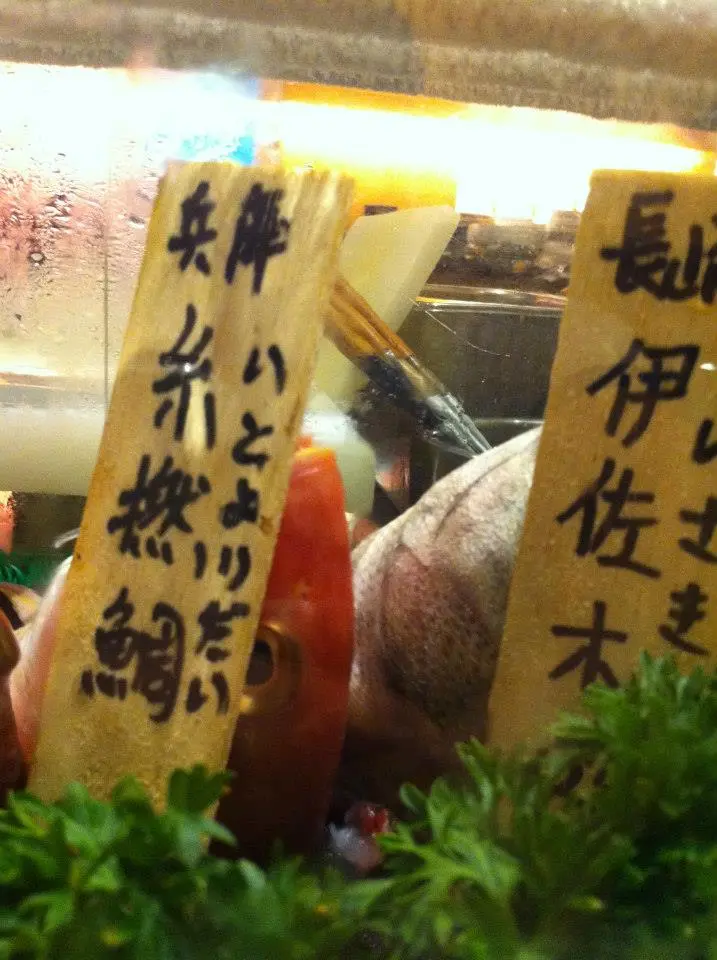 兵庫
糸撚鯛
いとよりだい
長崎
伊佐木
いさき